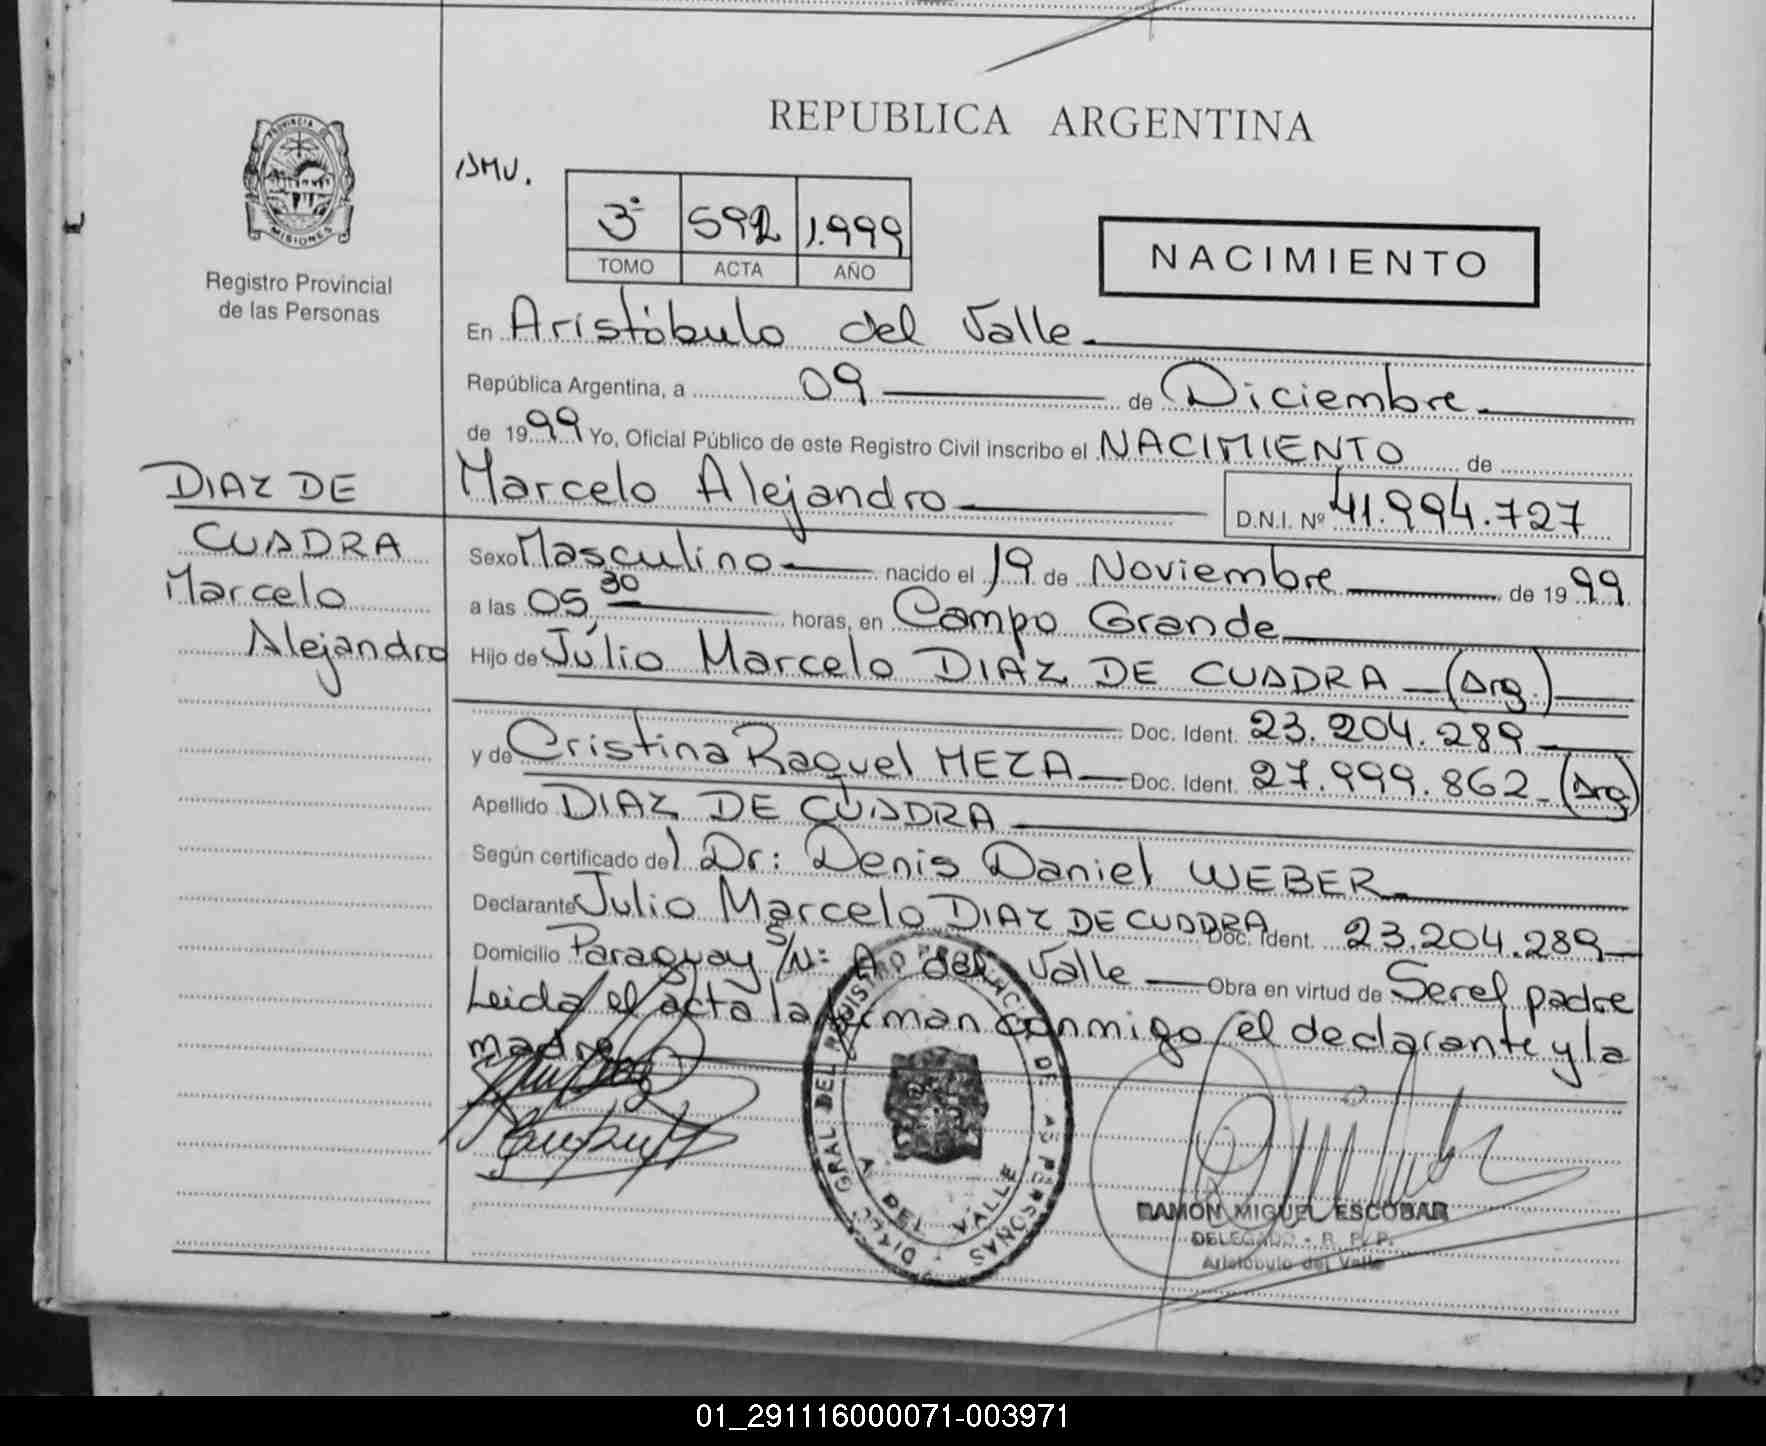 REPUBLICA ARGENTINA
PROVINCIA DE
MISIONES
Registro Provincial
de las Personas
3º 592 1.999
TOMO ACTA AÑO
NACIMIENTO
En Aristóbulo del Valle
República Argentina, a 09 de Diciembre
de 1999 Yo, Oficial Público de este Registro Civil inscribo el NACIMIENTO de
Marcelo Alejandro D.N.I. Nº 41.994.727
DIAZ DE
CUADRA
Marcelo
Alejandro
Sexo Masculino nacido el 19 de Noviembre de 1999
a las 05,30 horas, en Campo Grande
Hijo de Júlio Marcelo DIAZ DE CUADRA (Arg.)
Doc. Ident. 23.204.289
y de Cristina Raquel MEZA Doc. Ident. 27.999.862 (Arg)
Apellido DIAZ DE CUADRA
Según certificado del Dr: Denis Daniel WEBER
Declarante Julio Marcelo DIAZ DE CUADRA Doc. Ident. 23.204.289
Domicilio Paraguay S/Nº A. del Valle Obra en virtud de Ser el padre
Leida el acta la firman conmigo el declarante y la
madre
A. DEL VALLE
RAMON MIGUEL ESCOBAR
DELEGADO - R. P. P.
Aristóbulo del Valle
01_291116000071-003971